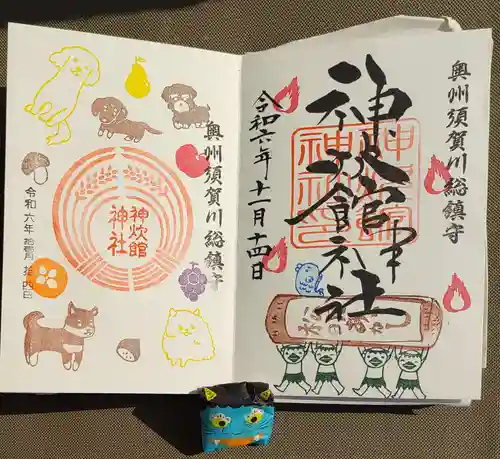 奥州須賀川総鎮守
神炊館神社
令和六年十一月十四日
神炊館神社
奥州須賀川総鎮守
神炊館
神社
令和六年拾壱月拾四日